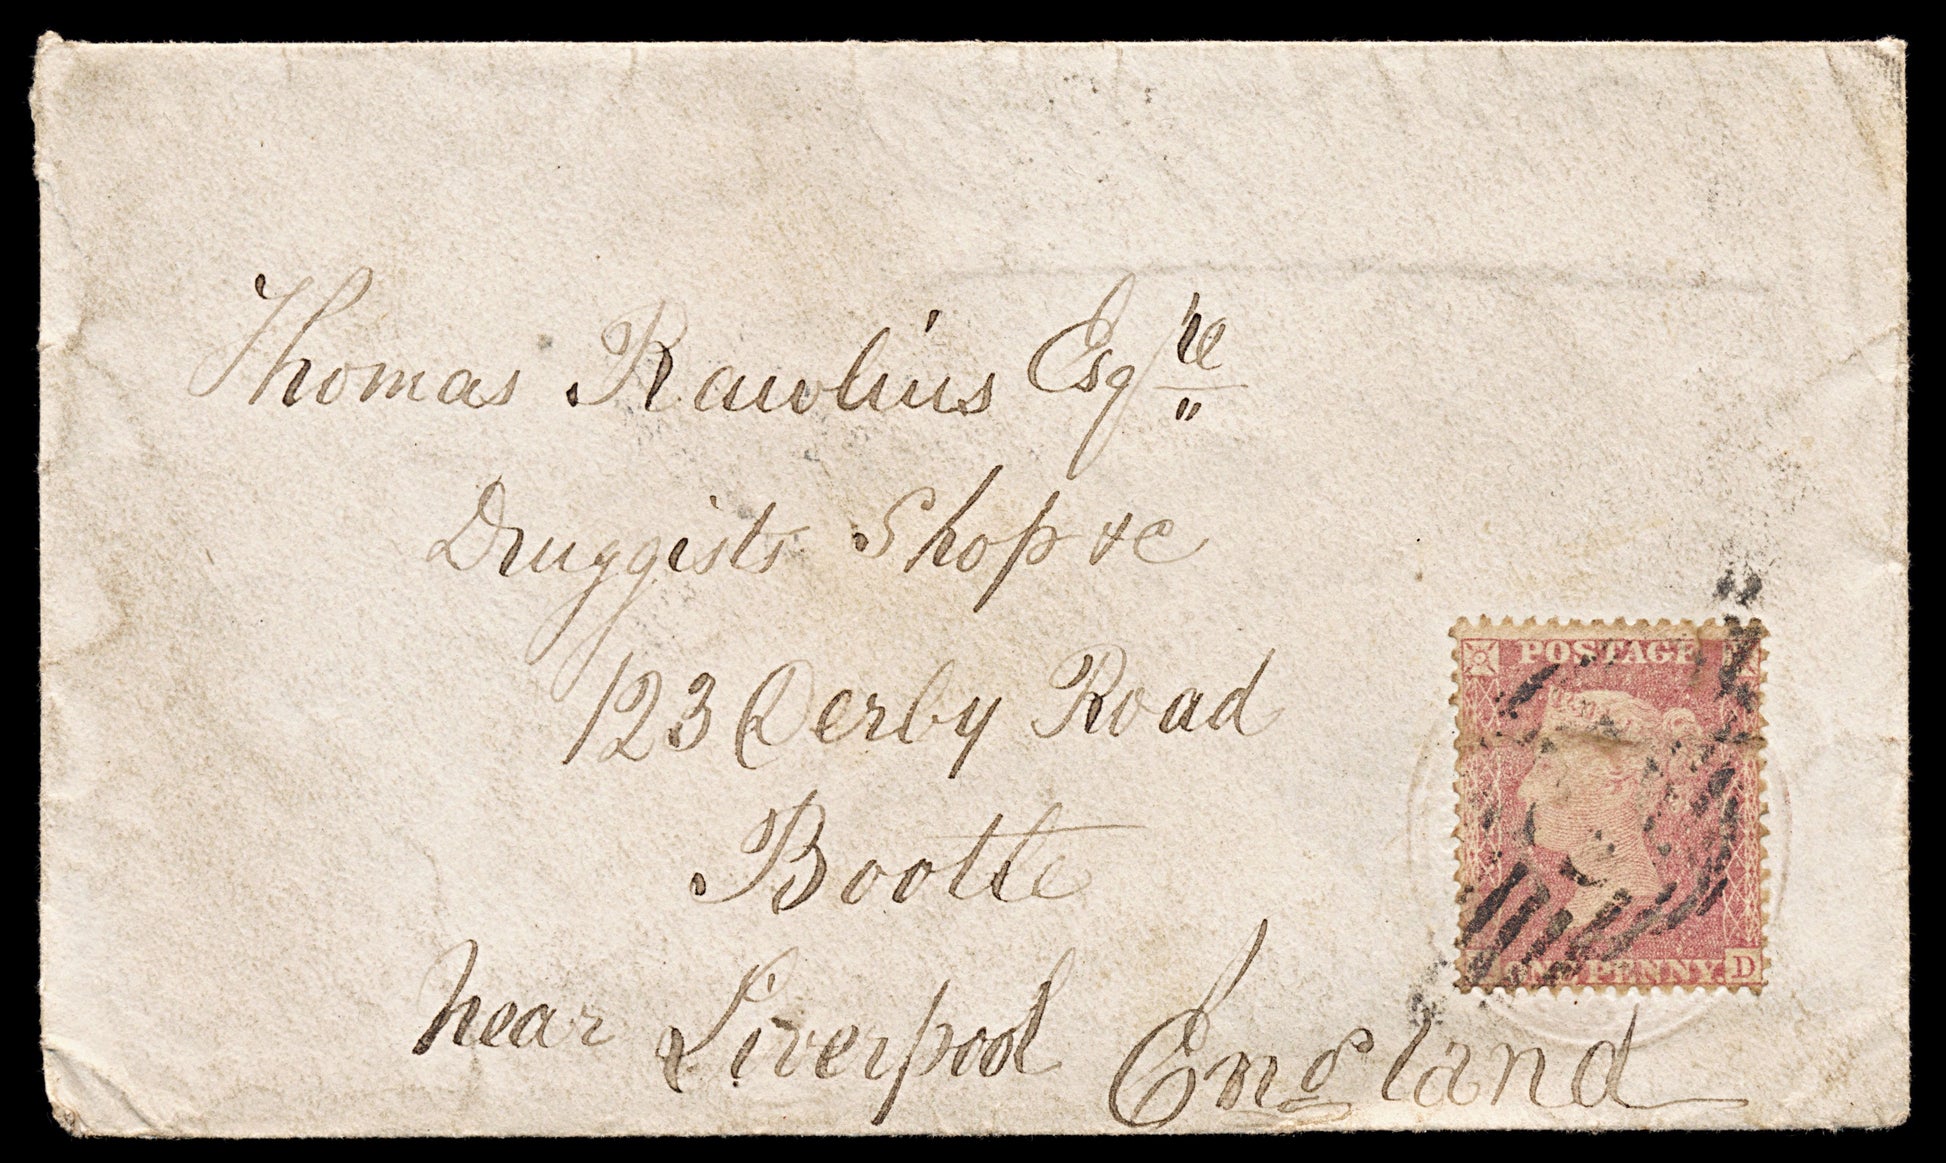 Thomas Rawlins Esqre
Druggists Shop &c
123 Derby Road
Bootle
near Liverpool England
POSTAGE
ONE PENNY D